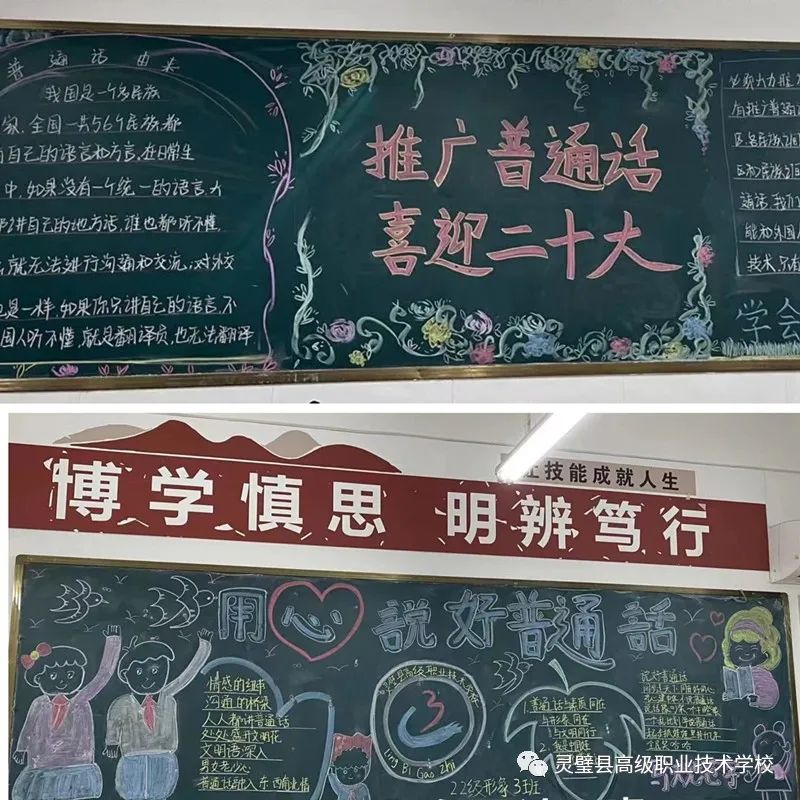 普通话由来
我国是一个多民族
家.全国一共56个民族,都
有自己的语言和方言,在日常生
中,如果没有一个统一的语言,大
都讲自己的地方话,谁也都听不懂,
就无法进行沟通和交流,对外交
也是一样,如果你只讲自己的语言,不
国人听不懂,就是翻译员,也无法翻译
推广普通话
喜迎二十大
必须大力推
有推广普通
区各民族之间
区和民族之间
通话,我们
能和外国人
技术,只有
学会
让技能成就人生
博学慎思 明辨笃行
用心 説好普通話
情感的纽带
沟通的桥梁
人人都讲普通话
处处盛开文明花
文明语深入
男女老少心
灵璧县高级职业技术学校
3
Ling Bi Gao zhi
22级形象3班
1.普通话与素质同在
与形象同在
与文明同行
说好普通话
灵璧县高级职业技术学校